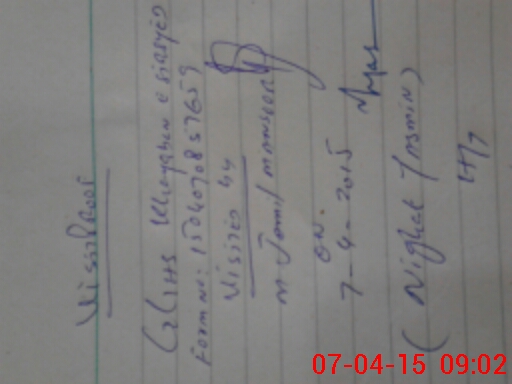 Visit Proof
GGHS Khangahan e siaryes
Form No: 1504070857659
Visited by
M. Jamil Mansoor
on.
7-4-2015
(Nighat Yasmin)
H/T
07-04-15 09:02